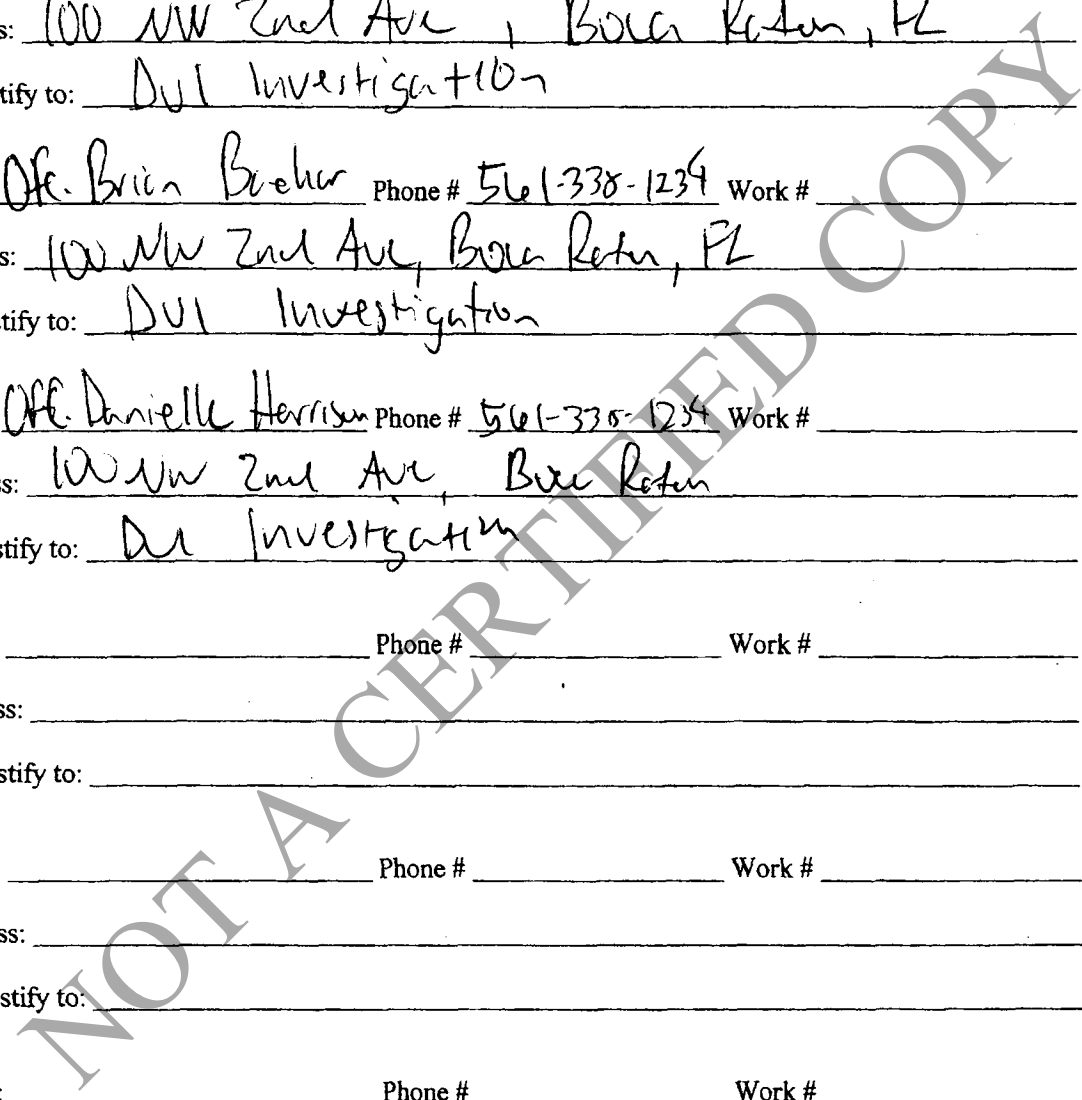 s: 100 NW 2nd Ave, Boca Raton, FL
tify to: DUI Investigation
Ofc. Brian Phone # 561-338-1234 Work #
s: 100 NW 2nd Ave, Boca Raton, FL
tify to: DUI Investigation
Ofc. Danielle Harrison Phone # 561-338-1234 Work #
ss: 100 NW 2nd Ave, Boca Raton
stify to: DUI Investigation
Phone # Work #
ss:
stify to:
Phone # Work #
ss:
stify to:
Phone # Work #
NOT A CERTIFIED COPY